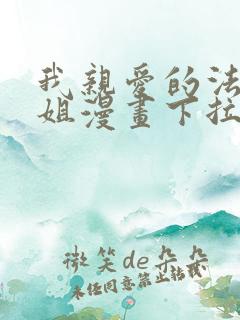 我親愛的法
姐漫畫下拉
微笑de朵朵
未任同意禁止轉載